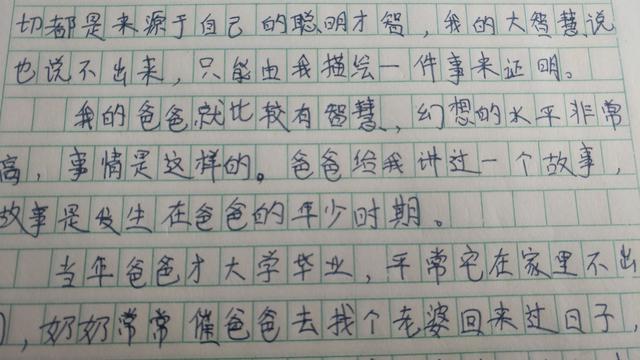 切都是来源于自己的聪明才智，我的大智慧说
也说不出来，只能由我描绘一件事来证明。
我的爸爸就比较有智慧，幻想的水平非常
高，事情是这样的。爸爸给我讲过一个故事，
故事是发生在爸爸的年少时期。
当年爸爸才大学毕业，平常宅在家里不出
，奶奶常常催爸爸去找个老婆回来过日子，